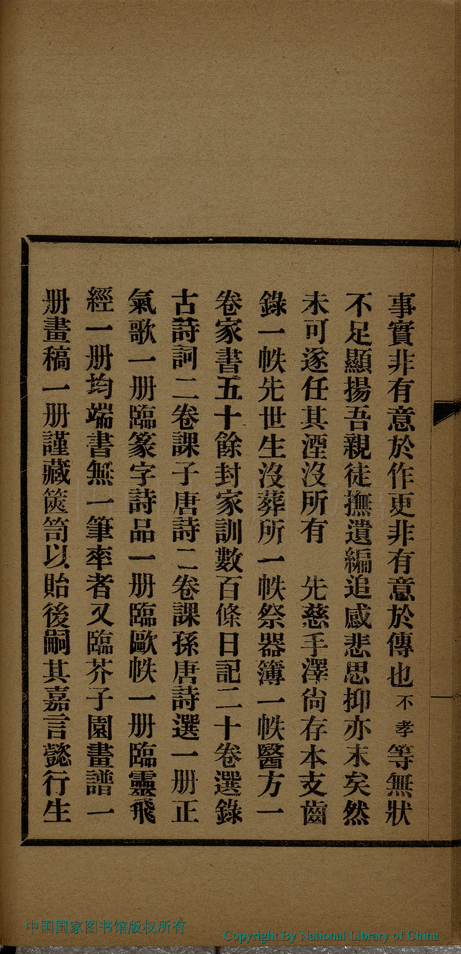 事實非有意於作更非有意於傳也不孝等無狀
不足顯揚吾親徒撫遺編追感悲思抑亦末矣然
未可遂任其湮沒所有　先慈手澤尙存本支齒
錄一帙先世生沒葬所一帙祭器簿一帙醫方一
卷家書五十餘封家訓數百條日記二十卷選錄
古詩詞二卷課子唐詩二卷課孫唐詩選一册正
氣歌一册臨篆字詩品一册臨歐帙一册臨靈飛
經一册均端書無一筆率者又臨芥子園畫譜一
册畫稿一册謹藏篋笥以貽後嗣其嘉言懿行生
中国国家图书馆版权所有
Copyright By National Library of China